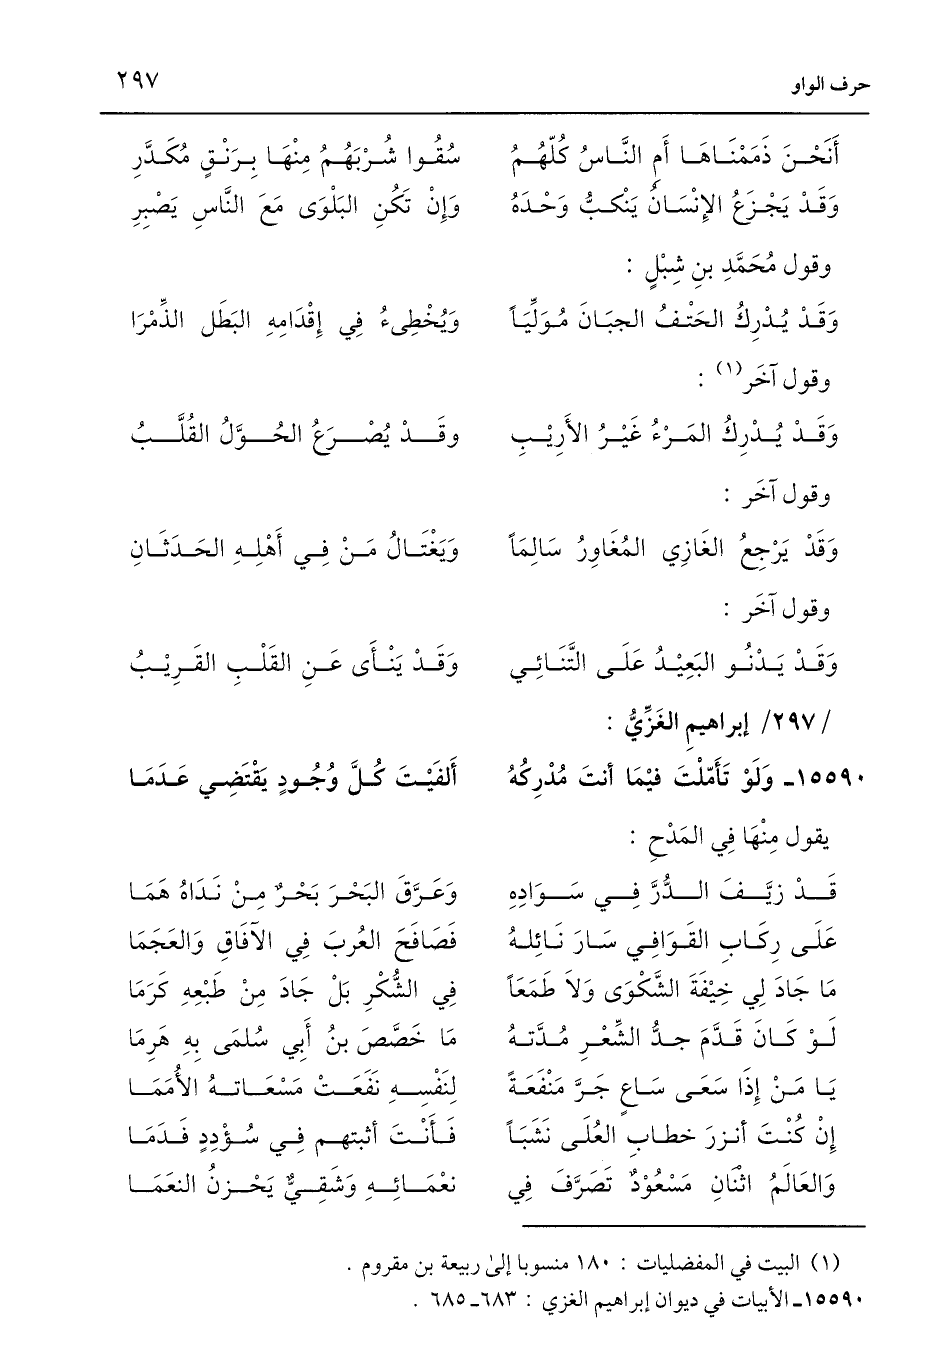 حرف الواو ٢٩٧
أَنَحْنَ ذَمَمْنَاهَا أَمِ النَّاسُ كُلّهُمُ سُقُوا شُرْبَهُمُ مِنْهَا بِرَنْقٍ مُكَدَّرِ
وَقَدْ يَجْزَعُ الإِنْسَانُ يَنْكبُّ وَحْدَهُ وَإِنْ تَكُنِ البَلْوَى مَعَ النَّاسِ يَصْبِرِ
وقول مُحَمَّدِ بنِ شِبْلٍ :
وَقَدْ يُدْرِكُ الحَتْفُ الجبَانَ مُوَلِّيَاً وَيُخْطِىءُ فِي إِقْدَامِهِ البَطَل الذِّمْرَا
وقول آخَر (١) :
وَقَدْ يُدْرِكُ المَرْءُ غَيْرُ الأَرِيْبِ وقَدْ يُصْرَعُ الحُوَّلُ القُلَّبُ
وقول آخَر :
وَقَدْ يَرْجِعُ الغَازِي المُغَاوِرُ سَالِمَاً وَيَغْتَالُ مَنْ فِي أَهْلِهِ الحَدَثَانِ
وقول آخَر :
وَقَدْ يَدْنُو البَعِيْدُ عَلَى التَّنَائِي وَقَدْ يَنْأَى عَنِ القَلْبِ القَرِيْبُ
/٢٩٧/ إبراهيم الغَزِّيُّ :
١٥٥٩٠ـ وَلَوْ تَأَمّلْتَ فيْمَا أنتَ مُدْركهُ أَلفَيْتَ كُلَّ وُجُودٍ يَقْتَضِي عَدَمَا
يقول مِنْهَا فِي المَدْحِ :
قَدْ زيَّفَ الدُّرَّ فِي سَوَادِهِ وَعَرَّقَ البَحْرَ بَحْرٌ مِنْ نَدَاهُ هَمَا
عَلَى رِكَابِ القَوَافِي سَارَ نَائِلهُ فَصَافَحَ العُربَ فِي الآفَاقِ وَالعَجَمَا
مَا جَادَ لِي خِيْفَةَ الشَّكْوَى وَلاَ طَمَعَاً فِي الشُّكْرِ بَلْ جَادَ مِنْ طَبْعِهِ كَرَمَا
لَوْ كَانَ قَدَّمَ جدُّ الشِّعْرِ مُدَّتهُ مَا خَصَّصَ بنُ أَبِي سُلمَى بِهِ هَرِمَا
يَا مَنْ إِذَا سَعَى سَاعٍ جَرَّ مَنْفَعَةً لِنَفْسِهِ نَفَعَتْ مَسْعَاتهُ الأُمَمَا
إِنْ كُنْتَ أنزرَ خطابِ العُلَى نَشَبَاً فَأَنْتَ أثبتهم فِي سُؤْددٍ قدَمَا
وَالعَالَمُ اثْنَانِ مَسْعُوْدٌ تَصَرَّفَ فِي نعْمَائِهِ وَشَقِيٌّ يَحْزنُ النعَمَا
(١) البيت في المفضليات : ١٨٠ منسوبا إلىٰ ربيعة بن مقروم .
١٥٥٩٠ـ الأبيات في ديوان إبراهيم الغزي : ٦٨٣ـ ٦٨٥ .